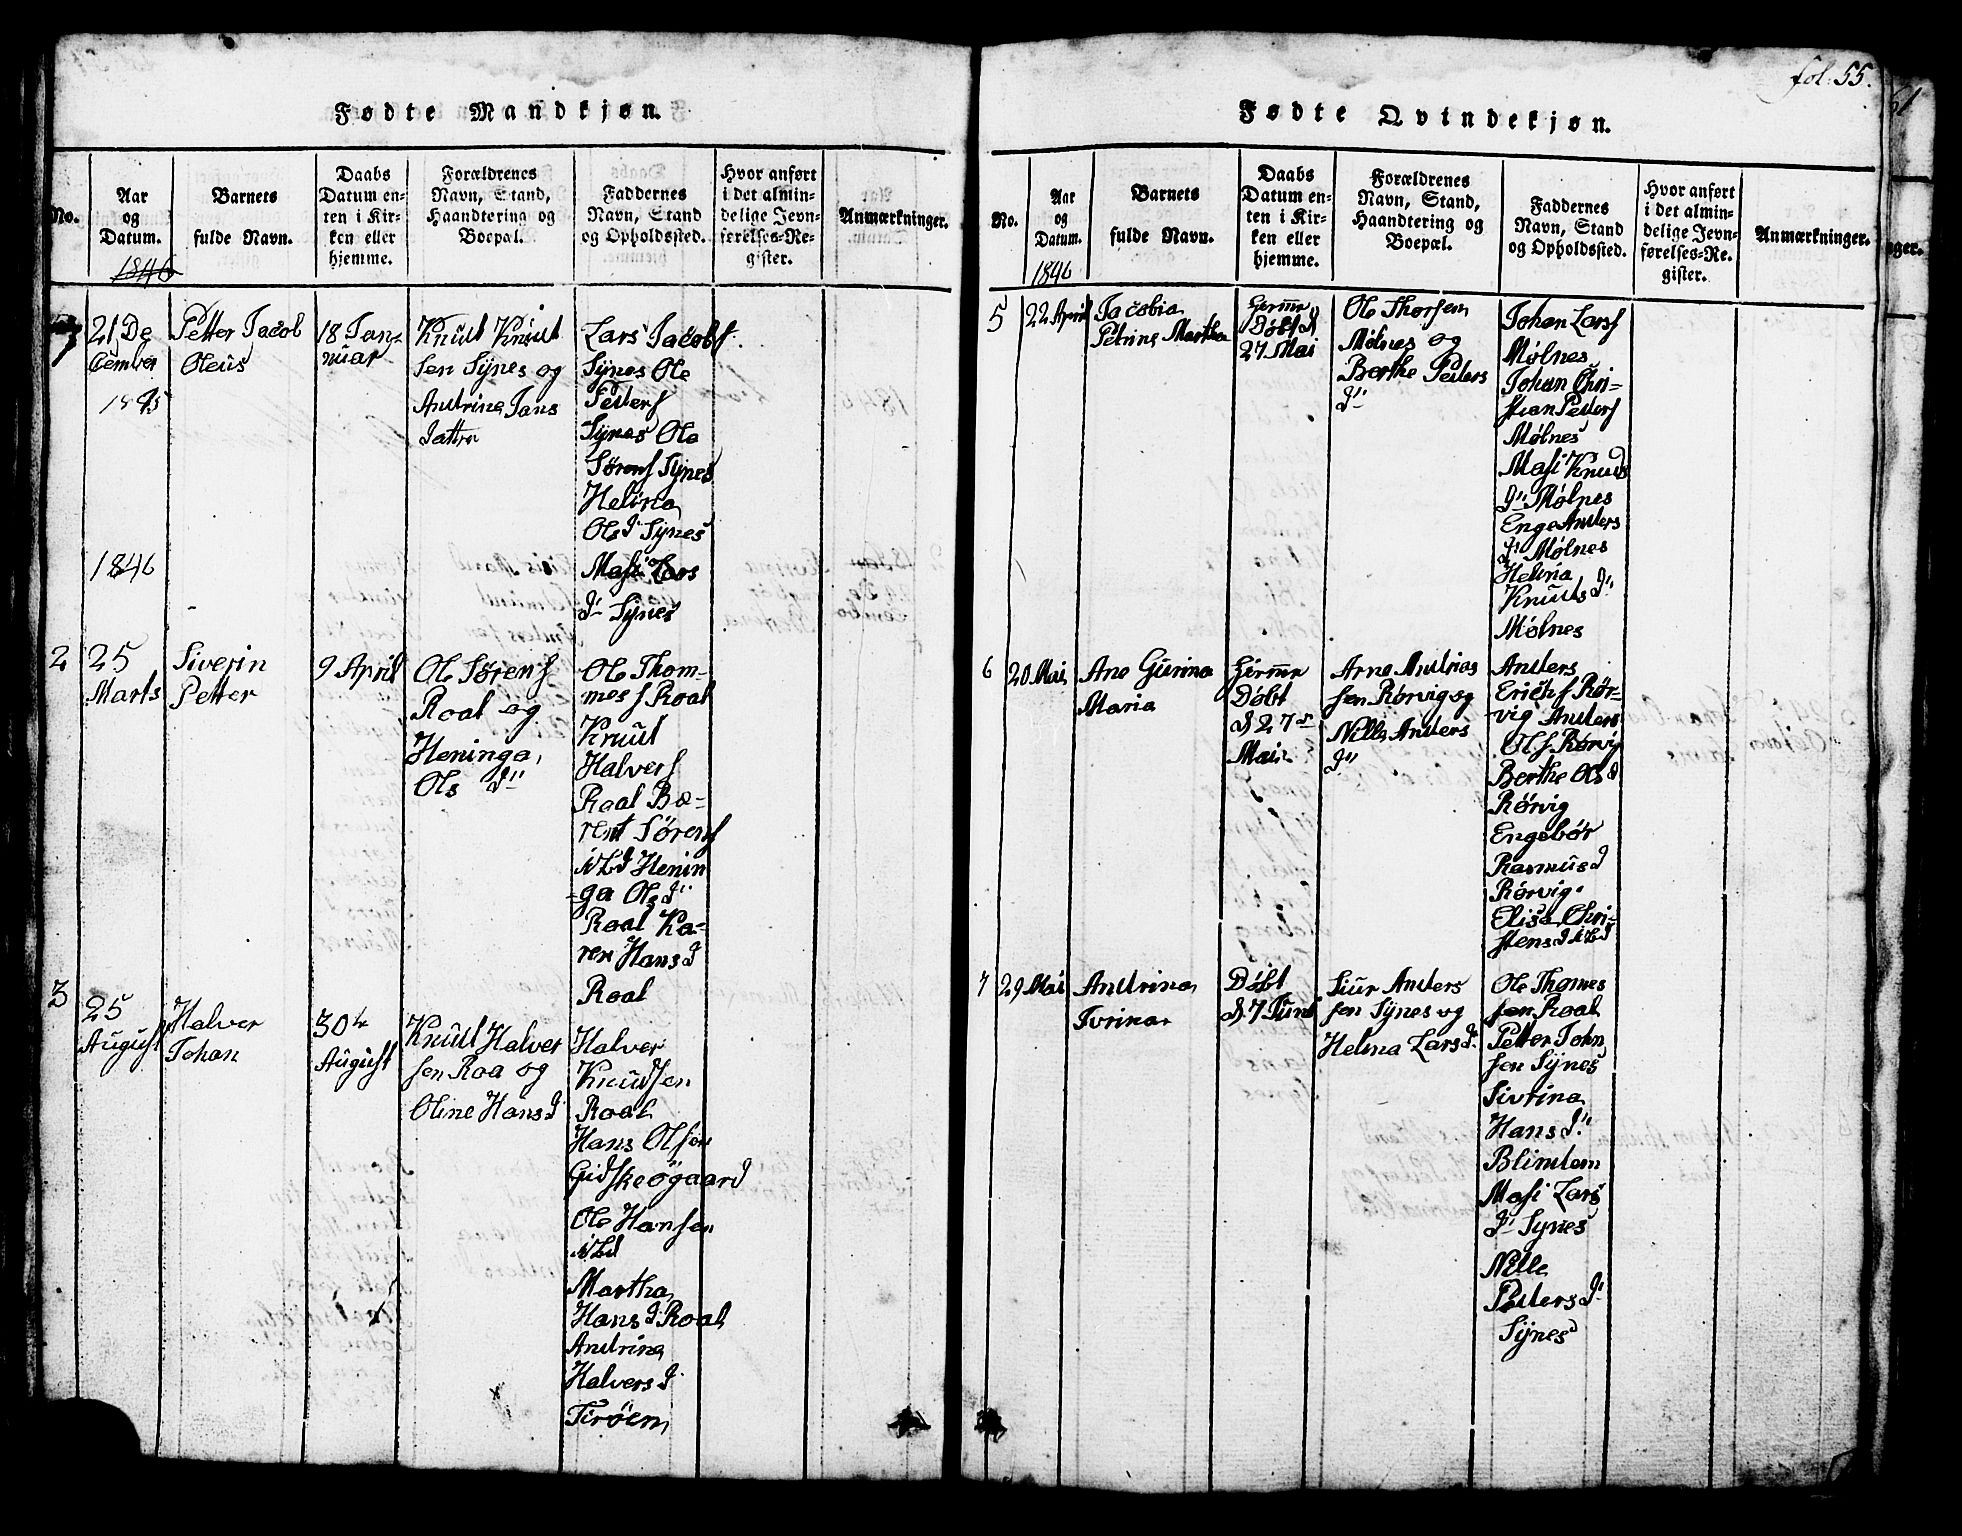 fol. 55.
61
Fødte Mandkjøn.
No.
Aar
og
Datum.
1846
Barnets
fulde Navn.
Daabs
Datum en-
ten i Kir-
ken eller
hjemme.
Forældrenes
Navn, Stand,
Haandtering og
Boepæl.
Faddernes
Navn, Stand
og Opholdssted.
Hvor anført
i det almin-
delige Jevn-
førelses-Re-
gister.
Anmærkninger.
21 De
Cember
1845
Petter Jacob
Oleus
18 Jan-
nuar
Knud Knud
sen Synes og
Andrine Jans
Datter
Lars Jacobs.
Synes Ole
Peders
Synes Ole
Sørens Synes
Helina
Ols D Synes
Masi Lars
D Synes
1846
2
25
Marts
Siverin
Petter
9 April
Ole Sørens
Roal og
Heninga
Ols D
Ole Thom-
mes s Roal
Knud
Halvers
Roal Bæ-
rent Sørens
ibd Henin
ga Ols D
Roal Ka-
ren Hans D
Roal
3
25
August
Halver
Johan
30
August
Knud Halver
sen Roa og
Oline Hans D
Halver
Knudsen
Roal
Hans Olsen
Gidskeögaard
Ole Hansen
ibd
Martha
Hans D Roal
Andrina
Halvers D
Giröen
Fødte Qvindekjøn.
No.
Aar
og
Datum.
1846
Barnets
fulde Navn.
Daabs
Datum en-
ten i Kir-
ken eller
hjemme.
Forældrenes
Navn, Stand,
Haandtering og
Boepæl.
Faddernes
Navn, Stand
og Opholdssted.
Hvor anført
i det almin-
delige Jevn-
førelses-Re-
gister.
Anmærkninger.
5
22 April
Jacobia
Petrine Martha
Døbt d
27 Mai
Ole Thorsen
Mølnes og
Berthe Peders
D
Johan Lars s
Mølnes
Johan Chri-
stian Peders
Mølnes
Masi Knuds
D Mølnes
Enge Anders
D Mølnes
Helina
Knuds D
Mølnes
6
20 Mai
Ane Gurina
Maria
Døbt
d 27
Mai
Arne Andrias
sen Rørvig og
Nille Anders
D
Anders
Erichs Rør-
vig Anders
Ol s Rørvig
Berthe Ols D
Rørvig
Engebør
Rasmus D
Rørvig
Elisa Chri-
stens D ibd
7
29 Mai
Andrina
Ivrina
Døbt
d 7 Juni
Siur Anders
sen Synes og
Helina Lars D
Ole Thomes
sen Roal
Petter John
sen Synes
Sivrina
Hans D
Blindem
Masi Lars
D Synes
Nille
Peders D
Synes